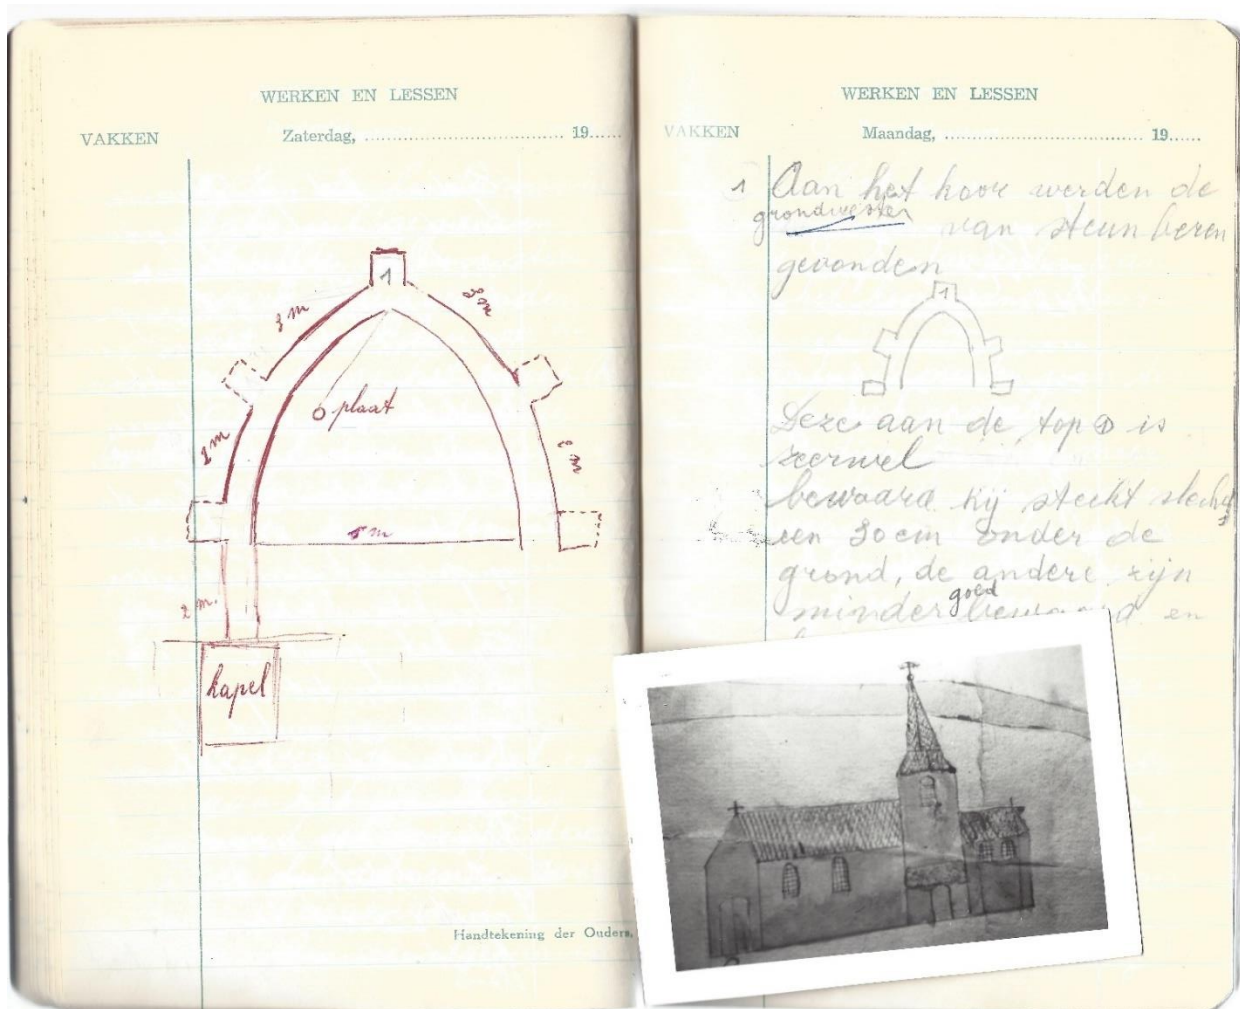 WERKEN EN LESSEN
VAKKEN Zaterdag, 19
1
3 m
3 m
plaat
2 m
2 m
5 m
2 m.
kapel
Handtekening der Ouders,
WERKEN EN LESSEN
VAKKEN Maandag, 19
1 Aan het koor werden de
grondvesten van steunberen
gevonden
1
Deze aan de top 1 is
zeerwel
bewaard hij steekt slechts
een 30 cm onder de
grond, de andere zijn
minder goed bewaard en